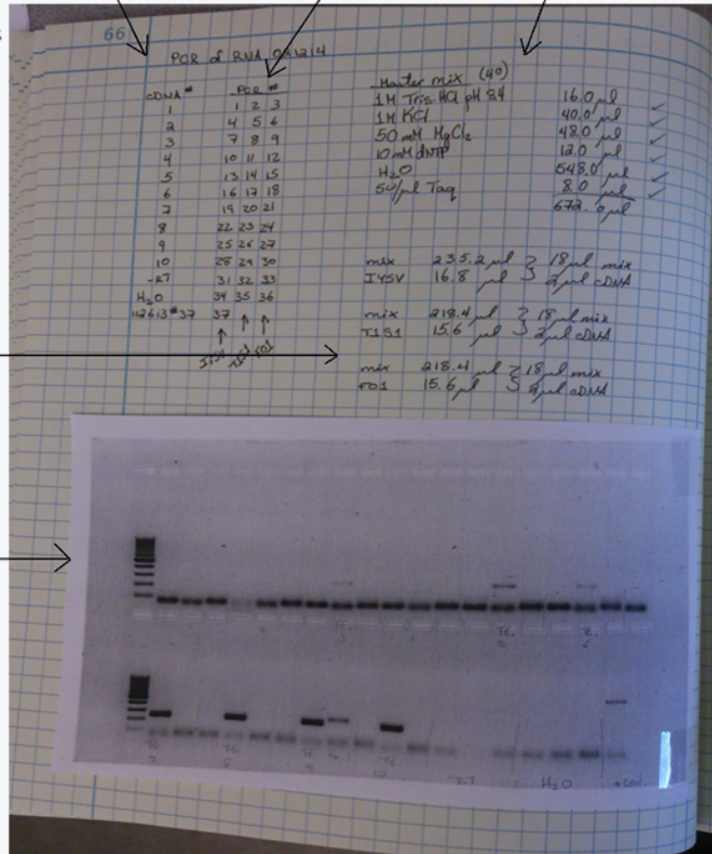 66
PCR of RNA 021214
cDNA # PCR #
1 1 2 3
2 4 5 6
3 7 8 9
4 10 11 12
5 13 14 15
6 16 17 18
7 19 20 21
8 22 23 24
9 25 26 27
10 28 29 30
-RT 31 32 33
H2O 34 35 36
112613 #37 37
Master mix (40)
1M Tris.HCl pH 8.4 16.0 µl ✓
1M KCl 40.0 µl ✓
50 mM MgCl2 48.0 µl ✓
10 mM dNTP 12.0 µl ✓
H2O 548.0 µl ✓
5U/µl Taq 8.0 µl ✓
672.0 µl
mix 235.2 µl } 18 µl mix
I45V 16.8 µl } 2 µl cDNA
mix 218.4 µl } 18 µl mix
T1S1 15.6 µl } 2 µl cDNA
mix 218.4 µl } 18 µl mix
15.6 µl } 2 µl cDNA
H2O